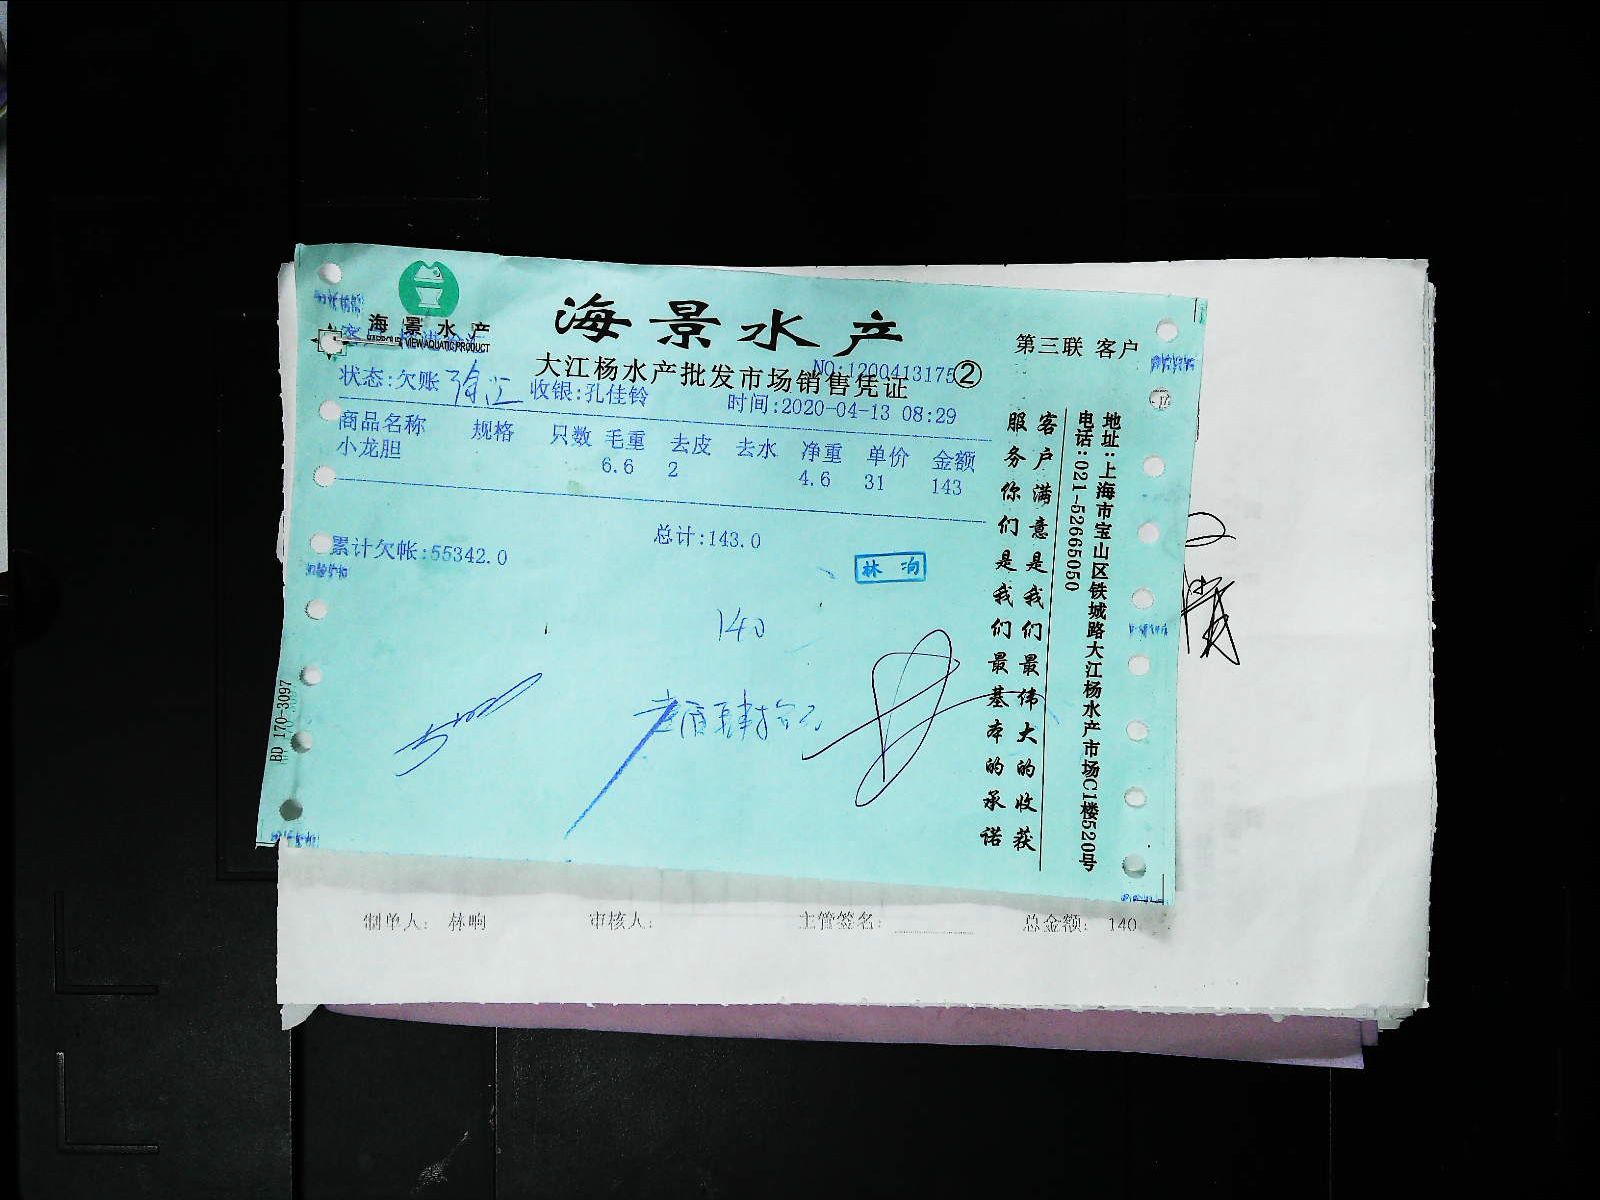 海景水产
HARBOUR VIEW AQUATIC PRODUCT
海景水产
第三联 客户
大江杨水产批发市场销售凭证 ②
NO:1200413175
状态:欠账
收银:孔佳铃
时间:2020-04-13 08:29
商品名称 规格 只数 毛重 去皮 去水 净重 单价 金额
小龙胆 6.6 2 4.6 31 143
总计:143.0
累计欠帐:55342.0
林响
140
壹佰肆拾元
客户满意是我们最伟大的收获
服务你们是我们最基本的承诺
地址:上海市宝山区铁城路大江杨水产市场C1楼520号
电话:021-52665050
BD 170-3097
制单人: 林响 审核人: 主管签名: 总金额: 140